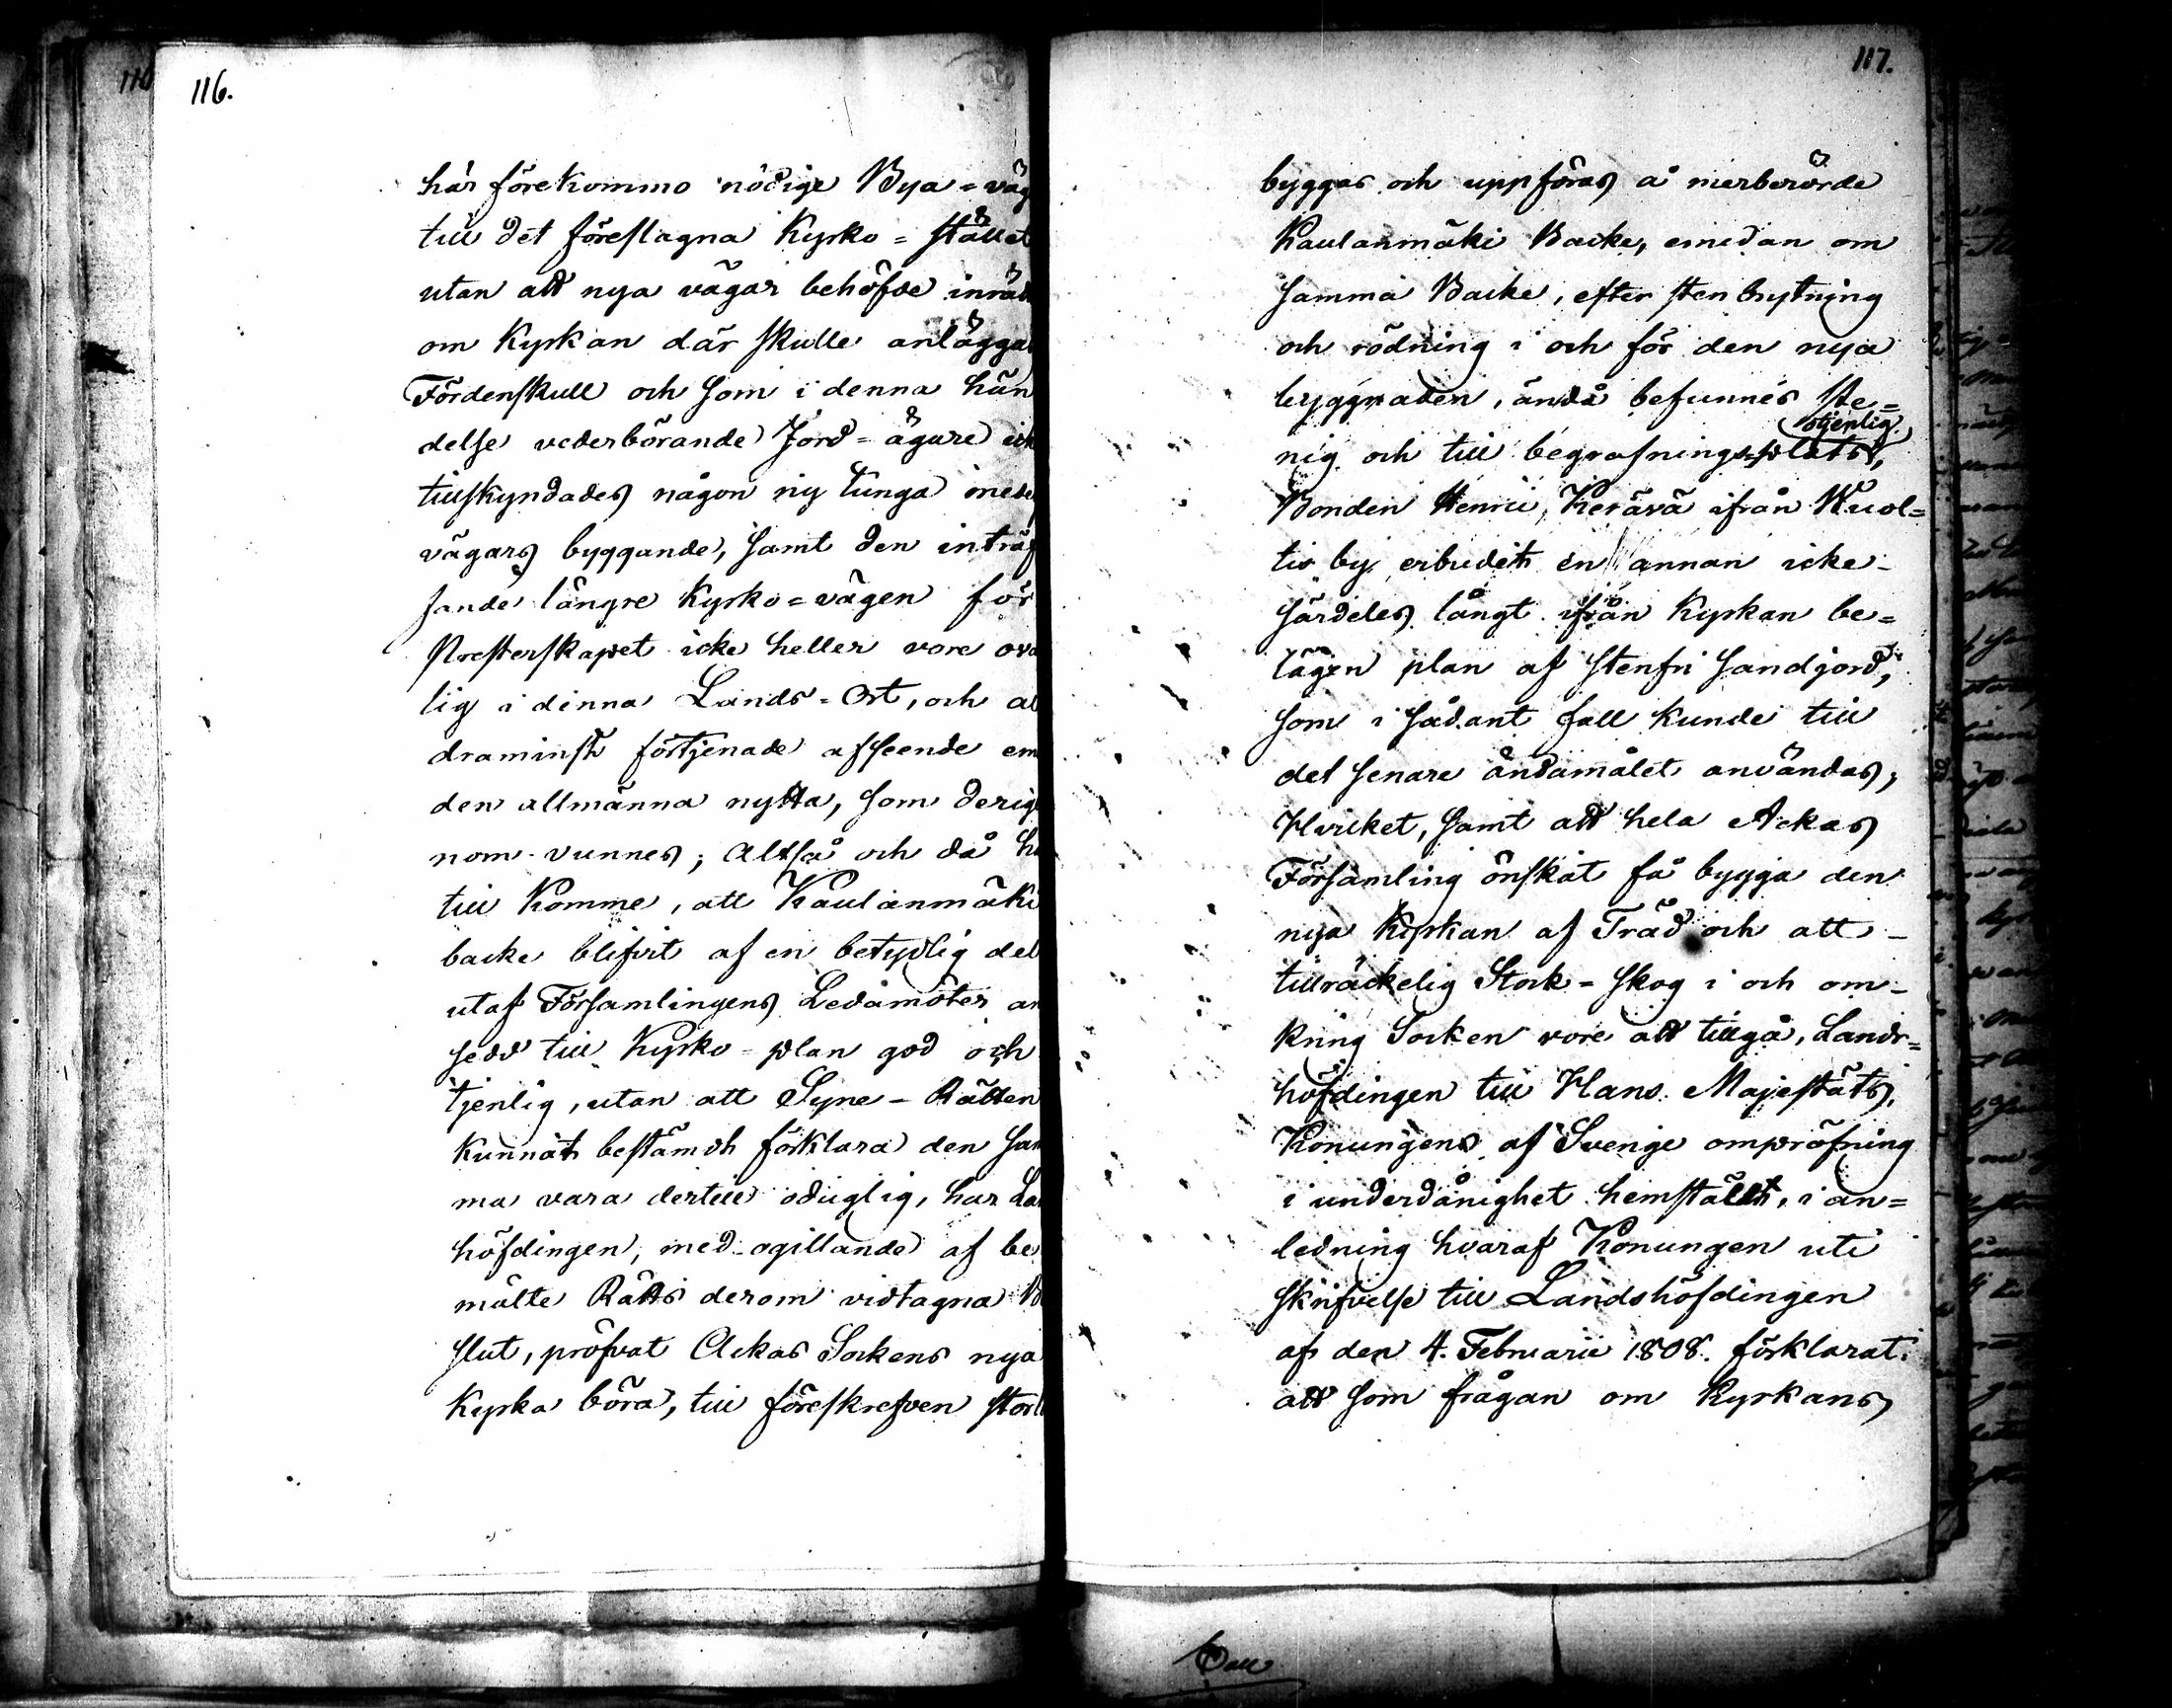 116.
här förekommo nödige Bya=väg
till det föreslagna Kyrko=stället
utan att nya vägar behöfde inrät
om Kyrkan där skulle anläggas
Fördenskull och som i denna hän
delse vederbörande Jord=ägare ick
tillskyndades någon ny tunga med
vägars byggande, samt den inträf
fande längre Kyrko=vägen för
Presterskapet icke heller vore ova
lig i denna Lands=Ort, och al
draminst förtjenade afseende em
den allmänna nytta, som derige
nom vunnes; Altså och då hä
till komme, att Kaulanmäki
backe blifvit af en betydlig del
utaf Församlingens Ledamöter an
sedd till Kyrko=plan god och
tjenlig, utan att Syne=Rätten
kunnat bestämdt förklara den sam
ma vara dertill oduglig, har La
höfdingen, med ogillande af be
mälte Rätts derom vidtagna B
slut, pröfvat Ackas Sockens nya
Kyrka böra, till föreskrefven storl
117.
byggas och uppföras å merberörde
Kaulanmäki Backe, emedan om
samma Backe, efter stenbrytning
och rödning i och för den nya
byggnaden, ändå befunnes ste=
nig och till begrafningsplats otjenlig,
Bonden Henric Kerävä ifrån Kuol=
tis by erbudit en annan icke
särdeles långt ifrån Kyrkan be=
lägen plan af stenfri sandjord,
som i sådant fall kunde till
det senare ändamålet användas;
Hvilket, samt att hela Ackas
Församling önskat få bygga den
nya Kyrkan af Träd och att
tillräckelig Stock=skog i och om=
kring Socken vore att tillgå, Lands=
höfdingen till Hans Majestäts,
Konungens af Sverige ompröfning
i underdånighet hemstält, i an=
ledning hvaraf Konungen uti
skrifvelse till Landshöfdingen
af den 4. Februarii 1808. förklarat:
att som frågan om Kyrkans